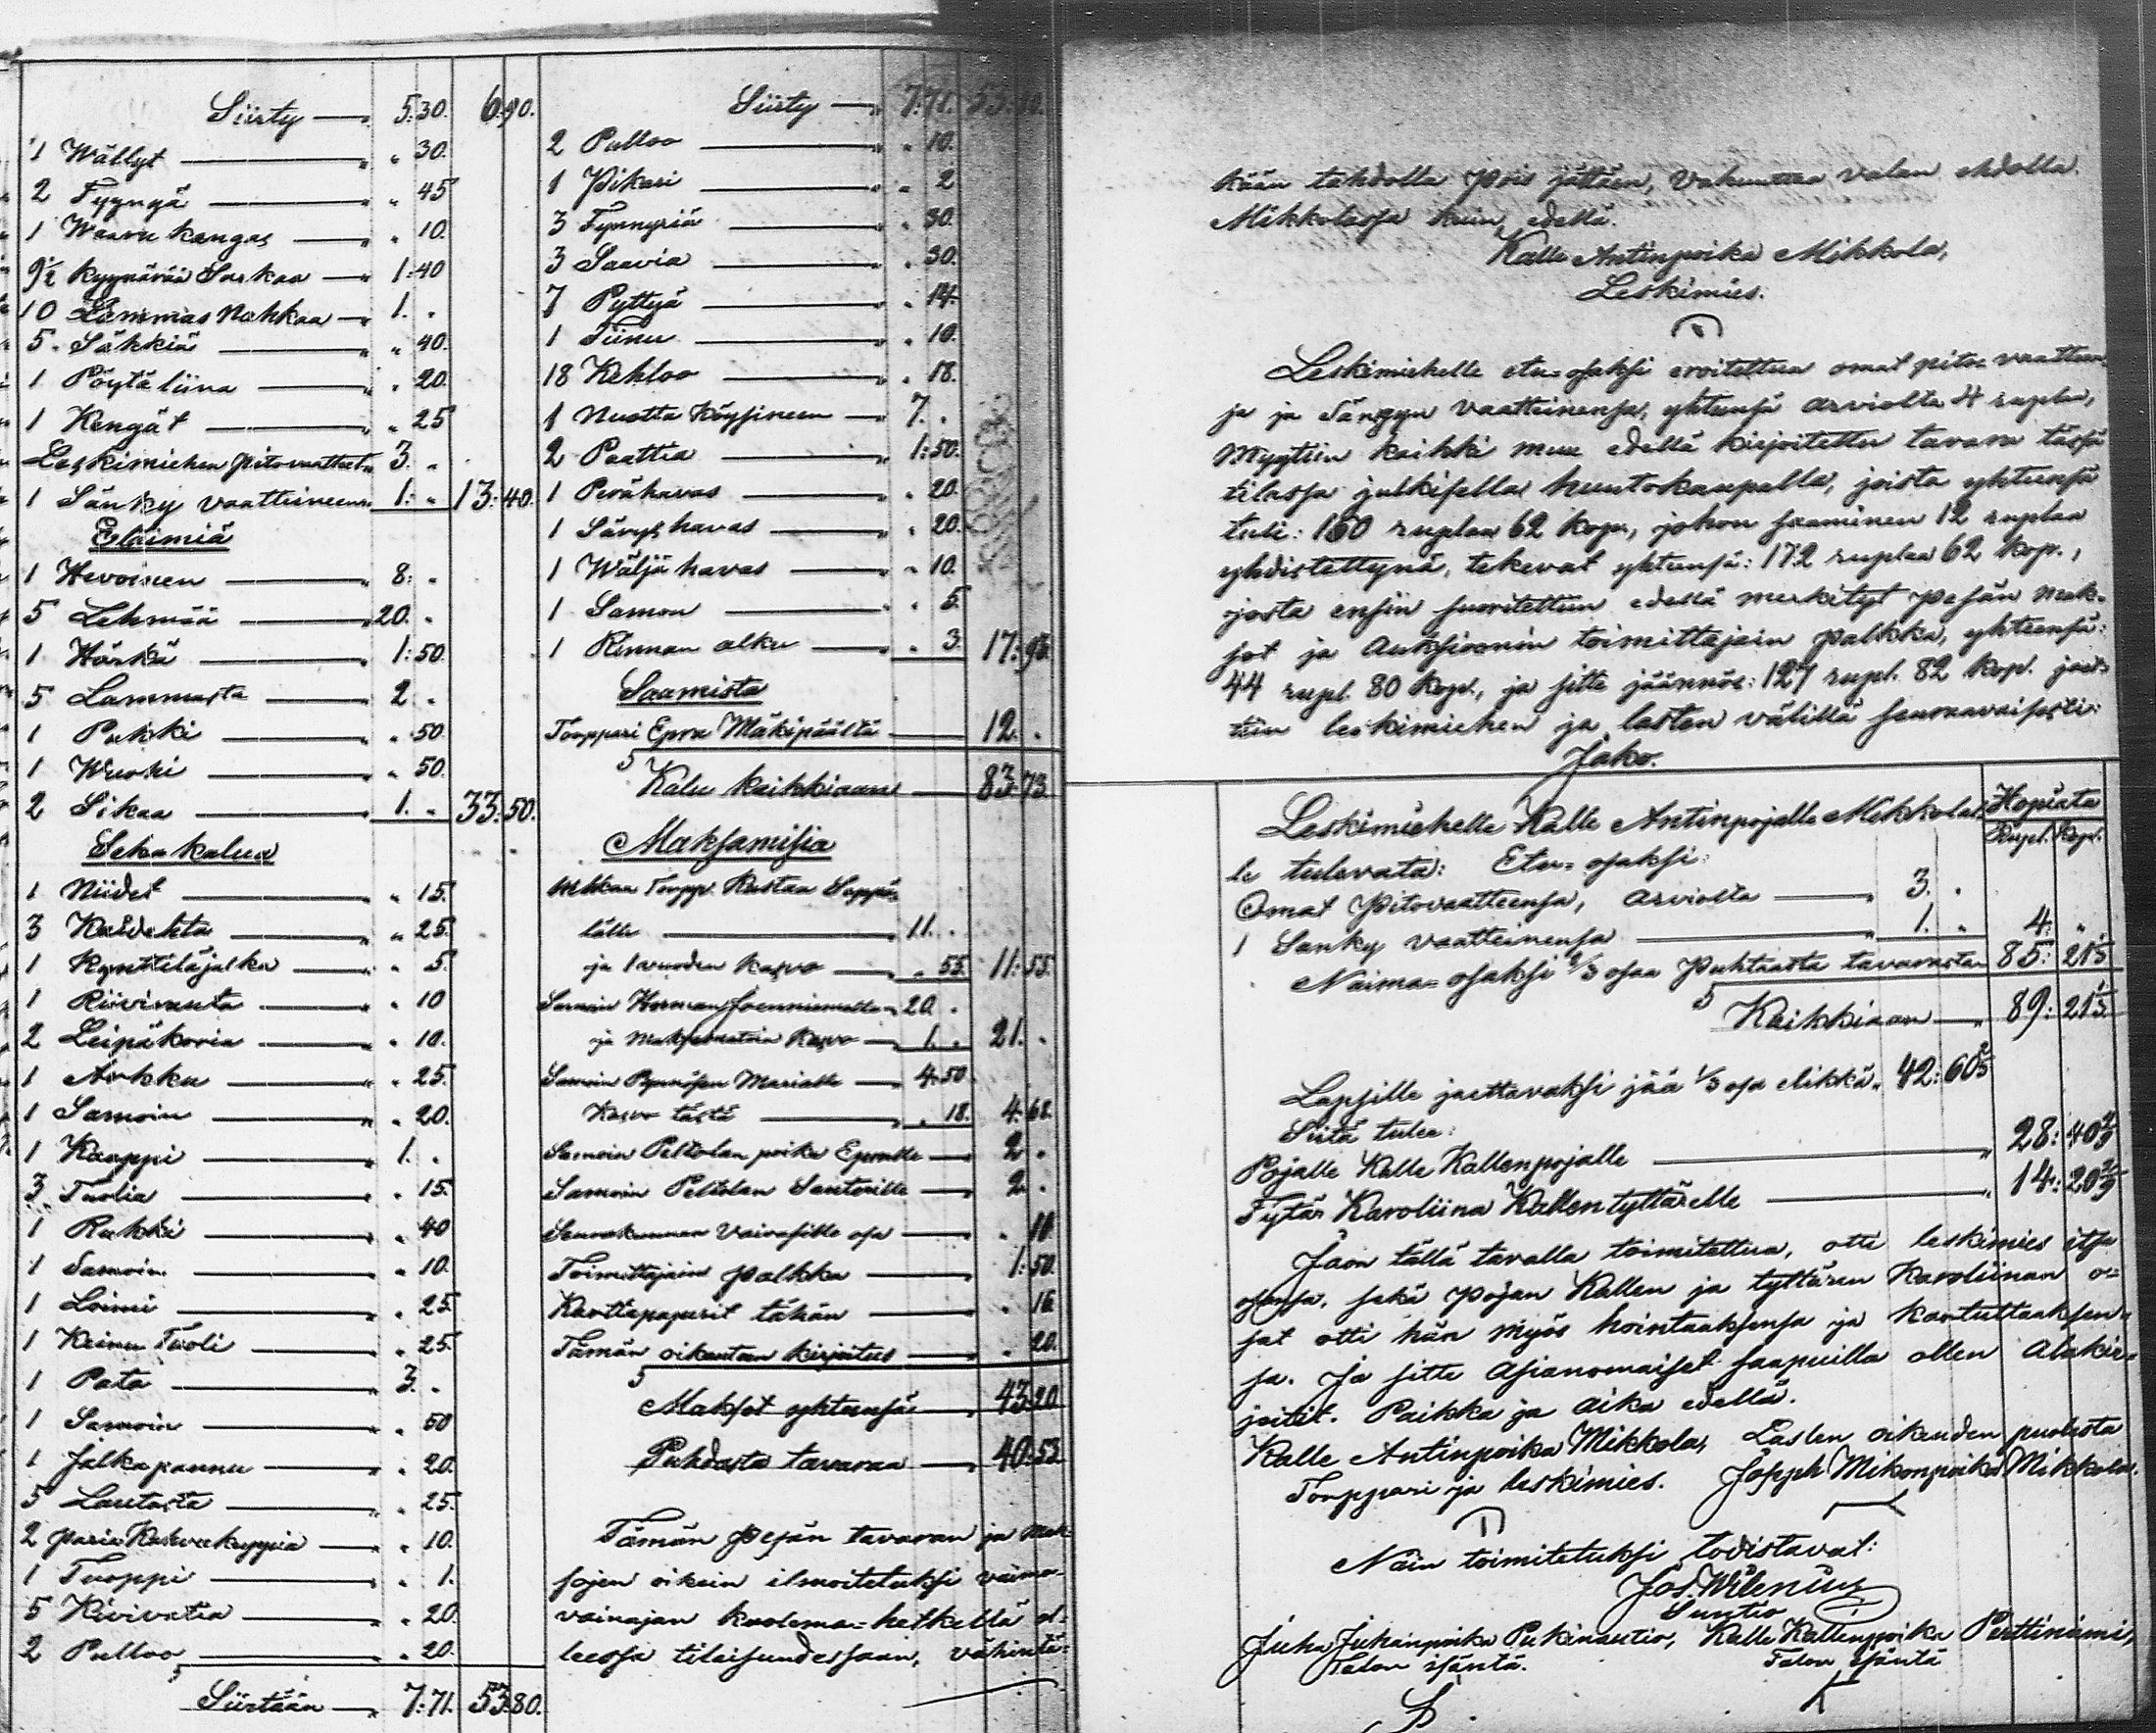 Siirty — „ 5:30. 6:90.
1 Wällyt — „ „ 30.
2 Tyyngä — „ „ 45
1 Waaru kangas — „ „ 10.
9½ kyynärää Sarkaa — „ 1:40
10 Lammas Nahkaa — „ 1. „
5. Säkkiä — „ „ 40.
1 Pöytä liina — „ „ 20.
1 Kengät — „ „ 25
Leskimiehen pitovaatteet „ 3. „
1 Sänky vaatteineen „ 1: „ 13:40.
Elaimiä
1 Hevoinen — „ 8: „
5 Lehmää — „ 20. „
1 Härkä — „ 1:50.
5 Lammasta — „ 2 „
1 Pukki — „ „ 50
1 Wuohi — „ „ 50.
2 Sikaa — „ 1. „ 33:50.
Seka kalua
1 Niidet — „ „ 15.
3 Kaidehta — „ „ 25.
1 Kynttiläjalka — „ „ 5.
1 Riivirauta — „ „ 10
2 Leipäkoria — „ „ 10.
1 Arkku — „ „ 25.
1 Samoin — „ „ 20.
1 Kaappi — „ 1. „
3 Tuolia — „ „ 15.
1 Rukki — „ „ 40
1 Samoin — „ „ 10.
1 Loimi — „ „ 25.
1 Keinu Tuoli — „ „ 25.
1 Pata — „ 3. „
1 Samoin — „ „ 50
1 Jalkapannu — „ „ 20.
5 Lautasta — „ „ 25.
2 paria Kahveekuppia — „ „ 10.
1 Tuoppi — „ „ 1.
5 Kivivatia — „ „ 20.
2 Pulloo — „ „ 20.
Siirtään — „ 7:71. 53:80.
Siirty — „ 7:71. 53:80.
2 Pulloo — „ „ 10.
1 Pikari — „ „ 2
3 Tynnyriä — „ „ 30.
3 Saavia — „ „ 30.
7 Pyttyä — „ „ 14.
1 Tiinu — „ „ 10.
18 Kehloo — „ „ 18.
1 Nuotta köysineen — „ 7. „
2 Paattia — „ 1:50.
1 Perähavas — „ „ 20.
1 havas — „ „ 20.
1 Wäljä havas — „ „ 10.
1 Samon — „ „ 5.
1 Rinnan alku — „ „ 3. 17:93.
Saamista
Torppari Epra Mäkipäältä — 12. „
Kalu kaikkiaan — 83:73.
Maksamisia
Torpp. Kustaa Seppä-
lälle — „ 11. „
ja 1 vuoden kasvo — „ „ 55. 11:55.
Samoin Herman Joenniemelle „ 20. „
ja maksamatoin kasvo — „ 1. „ 21. „
Samoin Marialle — „ 4:50.
Kasvo tästä — „ „ 18. 4:68.
Samoin Peltolan poika Epralle — „ 2 „
Samoin Peltolan Santerille — „ 2 „
Seurakunnan Vaivasille osa — „ „ 11
Toimittajain palkka — „ 1:50.
Karttapaperit tähän — „ „ 16
Tämän oikeuteen kirjoitus — „ „ 20.
Maksot yhteensä — „ 43:20
Puhdasta tavaraa — „ 40:53
Tämän pesän tavaran ja mak-
sojen oikein ilmoitetuksi vaimo-
vainajan kuolema-hetkellä ol-
leessa tilaisuudessaan, vähintä-
kään tahdolla pois jättäen, vakuuttaa valan ehdolla.
Mikkolassa kuin edellä.
Kalle Antinpoika Mikkola,
Leskimies.
Leskimiehelle etu-osaksi eroitettua omat pito vaatteen-
sa ja Sängyn vaatteinensa, yhteensä arviolta 4 ruplaa,
Myytiin kaikki muu edellä kirjoitettu tavara tässä
tilassa julkisella huutokaupalla, joista yhteensä
tuli: 160 ruplaa 62 kop., johon saaminen 12 ruplaa
yhdistettynä, tekevat yhteensä: 172 ruplaa 62 kop.,
josta ensin suoritettiin edellä merkityt pesän mak-
sot ja Auksioonin toimittajain palkka, yhteensä:
44 rupl. 80 kop., ja sitte jäännös: 127 rupl. 82 kop. jaet-
tiin leskimiehen ja lasten välillä seuraavaisesti:
Jako.
Hopiata
Rupl. Kop.
Leskimiehelle Kalle Antinpojalle Mikkolal-
le tulevata: Etu-osaksi:
Omat Pitovaatteensa, arviolta — „ 3. „
1 Sanky vaatteinensa — „ 1. „ 4: „
Naima-osaksi 2/3 osaa Puhtaasta tavarasta „ 85: 21⅓
Kaikkiaan — „ 89: 21⅓
Lapsille jaettavaksi jää 1/3 osa elikkä „ 42:60⅔
Siitä tulee:
Pojalle Kalle Kallenpojalle — „ 28: 40 4/9
Tytär Karoliina Kallentyttärelle — „ 14: 20 2/9
Jaon tällä tavalla toimitettua, otti leskimies itse
osansa, sekä pojan Kallen ja tyttären Karoliinan o-
sat otti hän myös hointaaksensa ja kartuttaaksen-
sa. Ja sitte Asianomaiset saapuilla ollen Alakir-
joitit. Paikka ja aika edellä.
Kalle Antinpoika Mikkola, Lasten oikeuden puolesta
Torppari ja leskimies. Joseph Mikonpoika Mikkola.
Näin toimitetuksi todistavat:
Jos. Wilenius
Suntio
Juha Juhanpoika Pukinautio, Kalle Kallenpoika Perttiniemi,
Talon isäntä. Talon isäntä